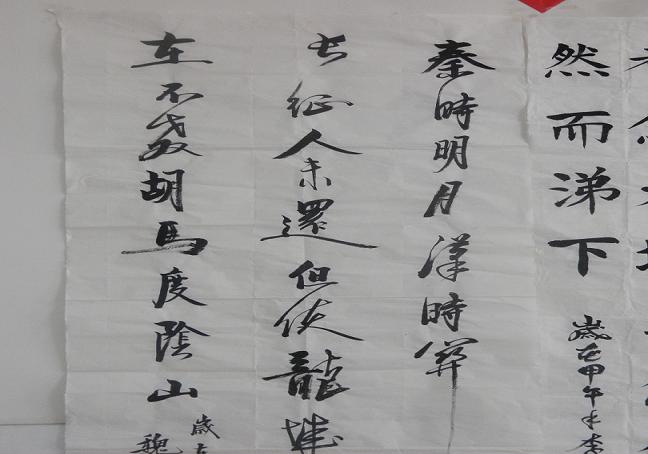 然而涕下
歲在甲午年李
秦時明月漢時關
長征人未還但使龍城
在不教胡馬度陰山
歲在
魏